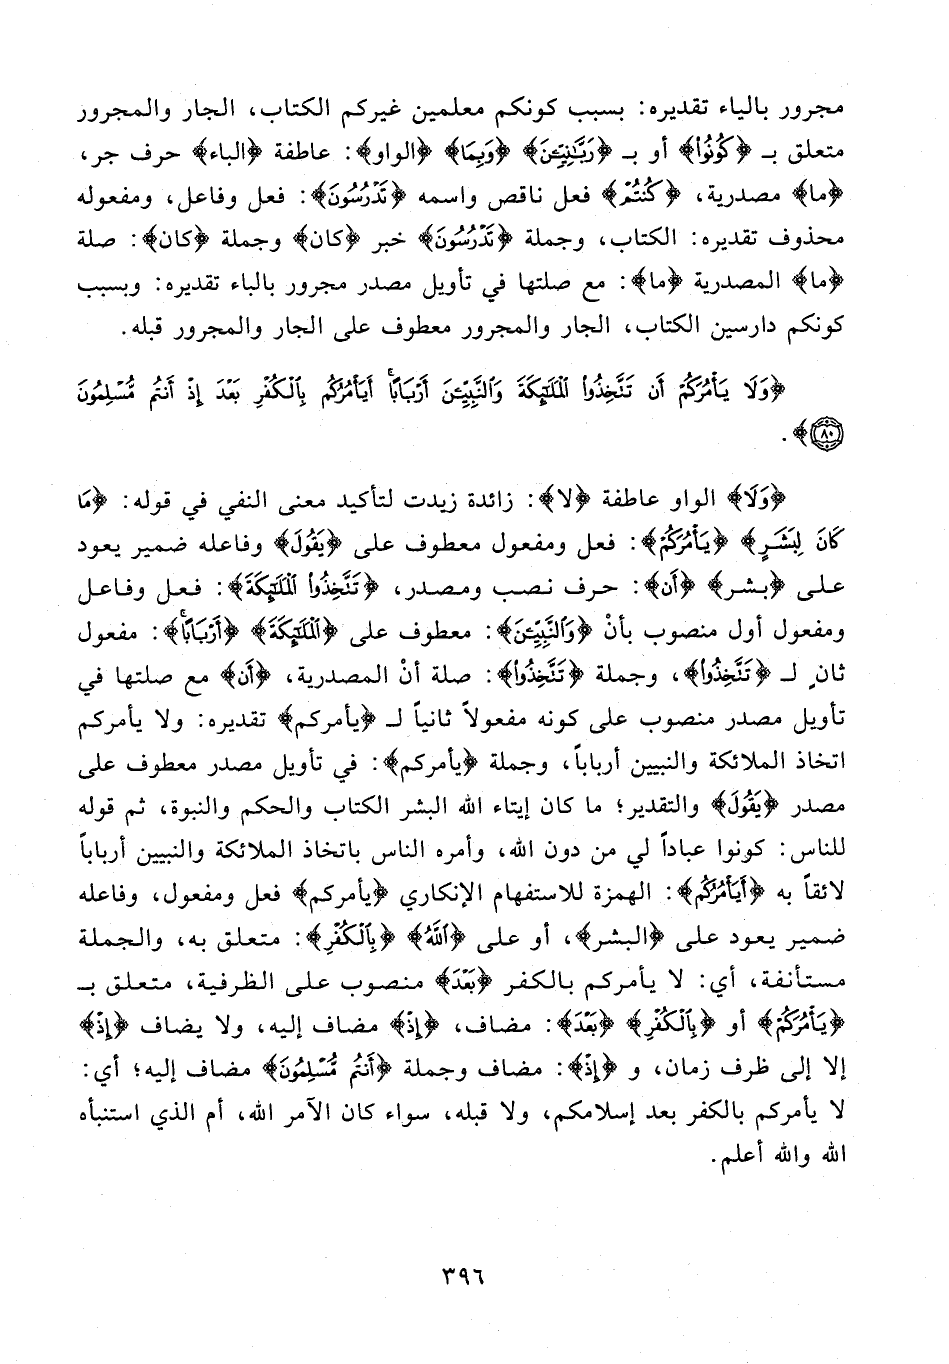 مجرور بالياء تقديره: بسبب كونكم معلمين غيركم الكتاب، الجار والمجرور
متعلق بـ ﴿كُونُوا۟﴾ أو بـ ﴿رَبَّـٰنِيِّـۧنَ﴾ ﴿وَبِمَا﴾ ﴿الواو﴾: عاطفة ﴿الباء﴾ حرف جر،
﴿ما﴾ مصدرية، ﴿كُنتُمْ﴾ فعل ناقص واسمه ﴿تَدْرُسُونَ﴾: فعل وفاعل، ومفعوله
محذوف تقديره: الكتاب، وجملة ﴿تَدْرُسُونَ﴾ خبر ﴿كان﴾ وجملة ﴿كان﴾: صلة
﴿ما﴾ المصدرية ﴿ما﴾: مع صلتها في تأويل مصدر مجرور بالباء تقديره: وبسبب
كونكم دارسين الكتاب، الجار والمجرور معطوف على الجار والمجرور قبله.
﴿وَلَا يَأْمُرَكُمْ أَن تَتَّخِذُوا۟ ٱلْمَلَـٰٓئِكَةَ وَٱلنَّبِيِّـۧنَ أَرْبَابًا ۗ أَيَأْمُرُكُم بِٱلْكُفْرِ بَعْدَ إِذْ أَنتُم مُّسْلِمُونَ
٨٠﴾.
﴿وَلَا﴾ الواو عاطفة ﴿لا﴾: زائدة زيدت لتأكيد معنى النفي في قوله: ﴿مَا
كَانَ لِبَشَرٍ﴾ ﴿يَأْمُرَكُمْ﴾: فعل ومفعول معطوف على ﴿يَقُولَ﴾ وفاعله ضمير يعود
على ﴿بشر﴾ ﴿أن﴾: حرف نصب ومصدر، ﴿تَتَّخِذُوا۟ ٱلْمَلَـٰٓئِكَةَ﴾: فعل وفاعل
ومفعول أول منصوب بأنْ ﴿وَٱلنَّبِيِّـۧنَ﴾: معطوف على ﴿ٱلْمَلَـٰٓئِكَةَ﴾ ﴿أَرْبَابًا ۗ﴾: مفعول
ثانٍ لـ ﴿تَتَّخِذُوا۟﴾، وجملة ﴿تَتَّخِذُوا۟﴾: صلة أنْ المصدرية، ﴿أن﴾ مع صلتها في
تأويل مصدر منصوب على كونه مفعولاً ثانياً لـ ﴿يأمركم﴾ تقديره: ولا يأمركم
اتخاذ الملائكة والنبيين أرباباً، وجملة ﴿يأمركم﴾: في تأويل مصدر معطوف على
مصدر ﴿يَقُولَ﴾ والتقدير؛ ما كان إيتاء الله البشر الكتاب والحكم والنبوة، ثم قوله
للناس: كونوا عباداً لي من دون الله، وأمره الناس باتخاذ الملائكة والنبيين أرباباً
لائقاً به ﴿أَيَأْمُرُكُم﴾: الهمزة للاستفهام الإنكاري ﴿يأمركم﴾ فعل ومفعول، وفاعله
ضمير يعود على ﴿البشر﴾، أو على ﴿ٱللَّهُ﴾ ﴿بِٱلْكُفْرِ﴾: متعلق به، والجملة
مستأنفة، أي: لا يأمركم بالكفر ﴿بَعْدَ﴾ منصوب على الظرفية، متعلق بـ
﴿يَأْمُرَكُمْ﴾ أو ﴿بِٱلْكُفْرِ﴾ ﴿بَعْدَ﴾: مضاف، ﴿إِذْ﴾ مضاف إليه، ولا يضاف ﴿إِذْ﴾
إلا إلى ظرف زمان، و ﴿إِذْ﴾: مضاف وجملة ﴿أَنتُم مُّسْلِمُونَ﴾ مضاف إليه؛ أي:
لا يأمركم بالكفر بعد إسلامكم، ولا قبله، سواء كان الآمر الله، أم الذي استنبأه
الله والله أعلم.
٣٩٦